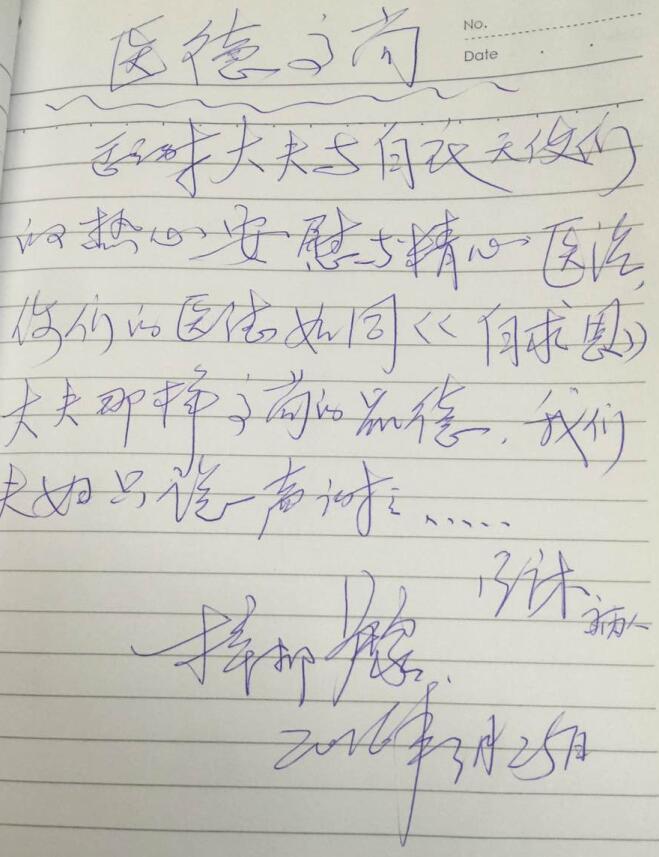 No.
Date
医德高尚
大夫与白衣天使们
的热心安慰与精心医治,
你们的医德如同《白求恩》
大夫那样高尚的品德,我们
夫妇只说一声谢谢……
病人
2016年3月25日